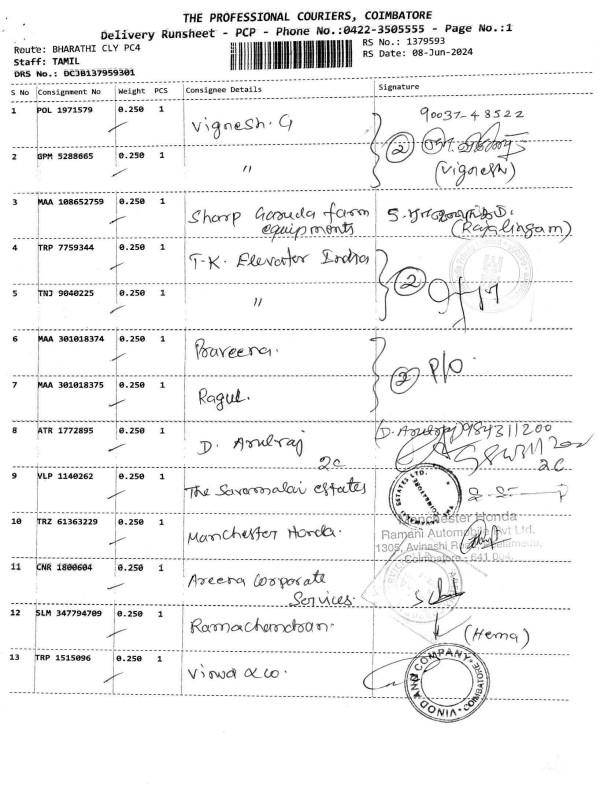 THE PROFESSIONAL COURIERS, COIMBATORE
Delivery Runsheet - PCP - Phone No.:0422-3505555 - Page No.:1
Route: BHARATHI CLY PC4
RS No.: 1379593
Staff: TAMIL
RS Date: 08-Jun-2024
DRS No.: DCJB137959301
S No Consignment No Weight PCS Consignee Details Signature
1 POL 1971579 0.250 1 Vignesh. G 90037-48522
2 GPM 5288665 0.250 1 " 2
(Vignesh)
3 MAA 108652759 0.250 1 Sharp Garuda farm
equipments (Rajalingam)
4 TRP 7759344 0.250 1 T.K. Elevator India
5 TNJ 9040225 0.250 1 " 2
6 MAA 301018374 0.250 1 Praveena. P/O
7 MAA 301018375 0.250 1 Ragul. 2
8 ATR 1772895 0.250 1 D. Arulraj (D. Arulraj)
2c 2C
9 VLP 1140262 0.250 1 The Savamalai estates
ESTATES LTD.
10 TRZ 61363229 0.250 1 Manchester Honda. Manchester Honda
Ramani Automobile Pvt Ltd.
1305, Avinashi
Coimbatore - 641 004.
11 CNR 1800604 0.250 1 Areena Corporate
Services.
12 SLM 347794709 0.250 1 Ramachandran. (Hema)
13 TRP 1515096 0.250 1 Viswa & co.
VINOD AND COMPANY
COIMBATORE